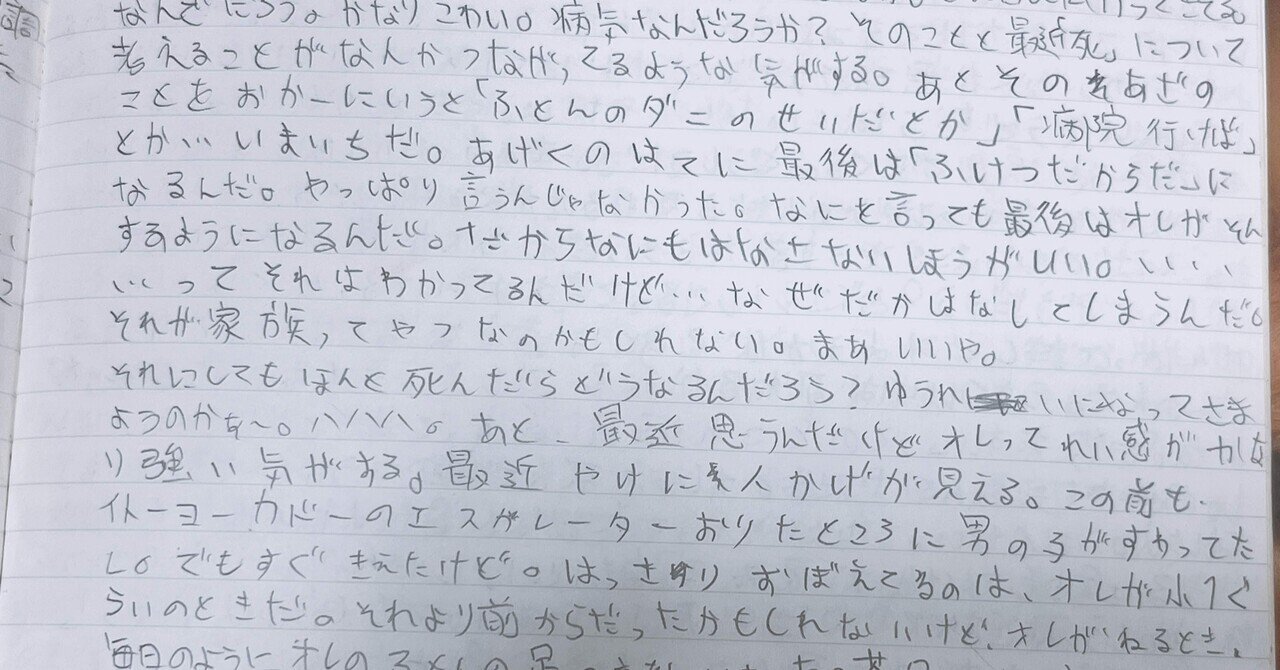 なんだろう。かなりこわい。病気なんだろうか？そのことと最近「死」について
考えることがなんかつながってるような気がする。あとそのあざの
ことをおかーにいうと「ふとんのダニのせいだとか」「病院行けば」
とか…いまいちだ。あげくのはてに最後は「ふけつだからだ」に
なるんだ。やっぱり言うんじゃなかった。なにを言っても最後はオレがそん
するようになるんだ。だからなにもはなさないほうがいい。、、、、
…ってそれはわかってるんだけど…なぜだかはなしてしまうんだ。
それが家族ってやつなのかもしれない。まあいいや。
それにしてもほんと死んだらどうなるんだろう？ゆうれいになってさま
ようのかな～。ハハハ。あと、最近思うんだけどオレってれい感がかな
り強い気がする。最近やけに人かげが見える。この前も
イトーヨーカドーのエスカレーターおりたところに男の子がすわってた
し。でもすぐきえたけど。はっきりおぼえてるのは、オレが小1ぐ
らいのときだ。それより前からだったかもしれないけど、オレがねるとき、
毎日のようにオレの